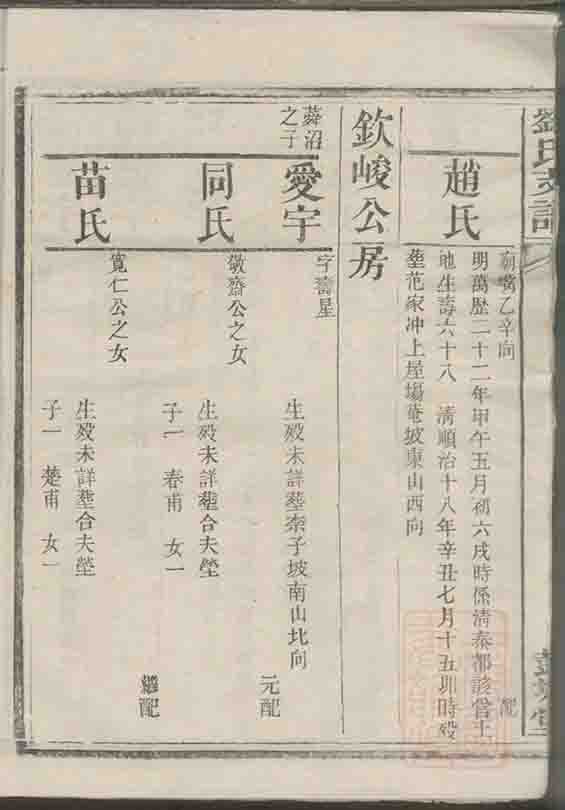 劉氏支譜
廟嘴乙辛向
配
趙氏
明萬歷二十二年甲午五月初六戌時係清泰都該管土
地生壽六十八 清順治十八年辛丑七月十五卯時歿
塟范家冲上屋場菴坡東山西向
欽峻公房
蕣沼
之子
愛宇
字壽星
生歿未詳塟柰子坡南山北向
元配
同氏
敬齋公之女
生歿未詳塟合夫塋
子一 春甫 女一
繼配
苗氏
寬仁公之女
生歿未詳塟合夫塋
子一 楚甫 女一